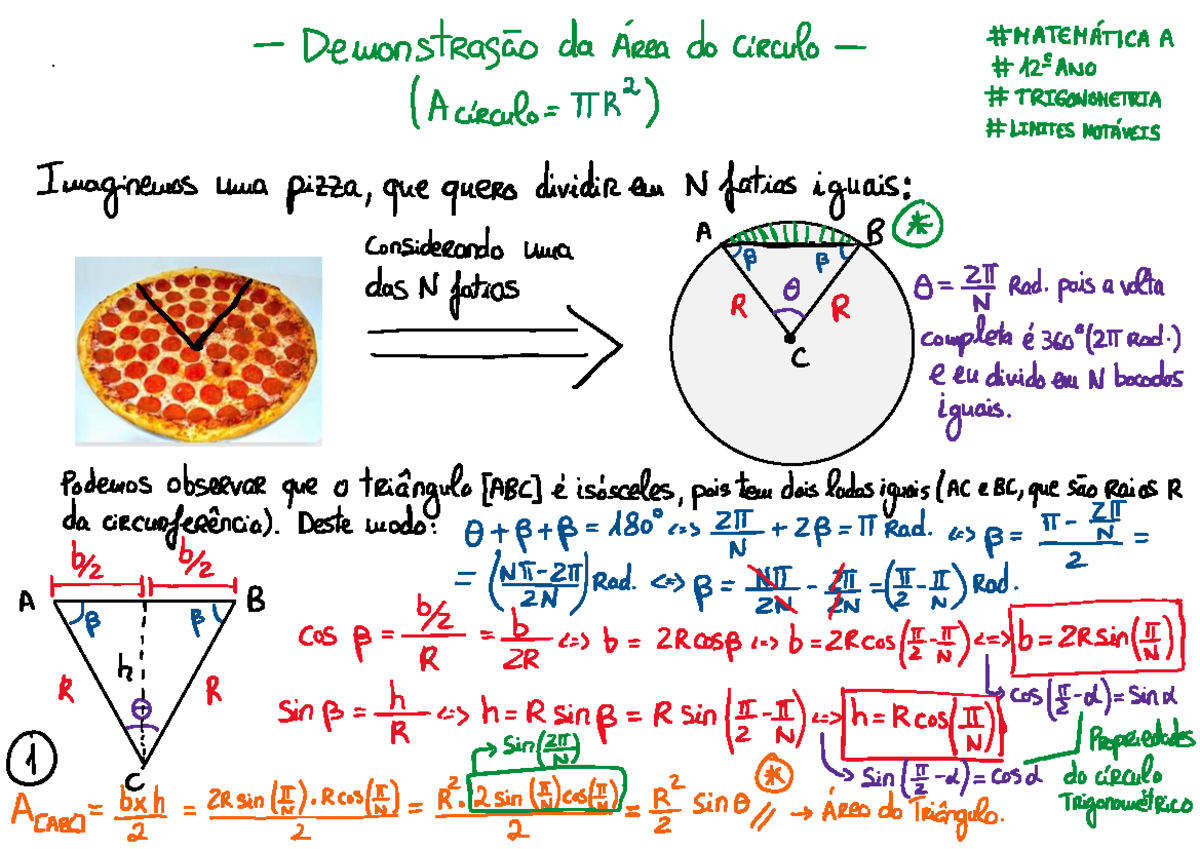 — Demonstração da Área do Círculo —
(A círculo = πR²)
#MATEMÁTICA A
# 12º ANO
# TRIGONOMETRIA
#LIMITES NOTÁVEIS
Imaginemos uma pizza, que quero dividir em N fatias iguais:
Considerando uma
das N fatias
A B *
β β
θ
R R
C
θ = 2π/N Rad. pois a volta
completa é 360° (2π Rad.)
e eu divido em N bocados
iguais.
Podemos observar que o triângulo [ABC] é isósceles, pois tem dois lados iguais (AC e BC, que são raios R
da circunferência). Deste modo:
θ + β + β = 180° <=> 2π/N + 2β = π Rad. <=> β = (π - 2π/N)/2 =
= ((Nπ-2π)/2N) Rad. <=> β = Nπ/2N - 2π/2N = (π/2 - π/N) Rad.
b/2 b/2
A B
β β
h
R R
θ
C
cos β = (b/2)/R = b/2R <=> b = 2Rcosβ <=> b = 2Rcos(π/2 - π/N) <=> b = 2Rsin(π/N)
cos(π/2 - α) = sin α
sin β = h/R <=> h = R sin β = R sin(π/2 - π/N) <=> h = R cos(π/N)
sin(π/2 - α) = cos α
Propriedades
do círculo
Trigonométrico
1
sin(2π/N)
A[ABC] = b×h/2 = (2R sin(π/N) . R cos(π/N))/2 = (R² . 2 sin(π/N) cos(π/N))/2 = R²/2 sin θ // → Área do Triângulo.
*